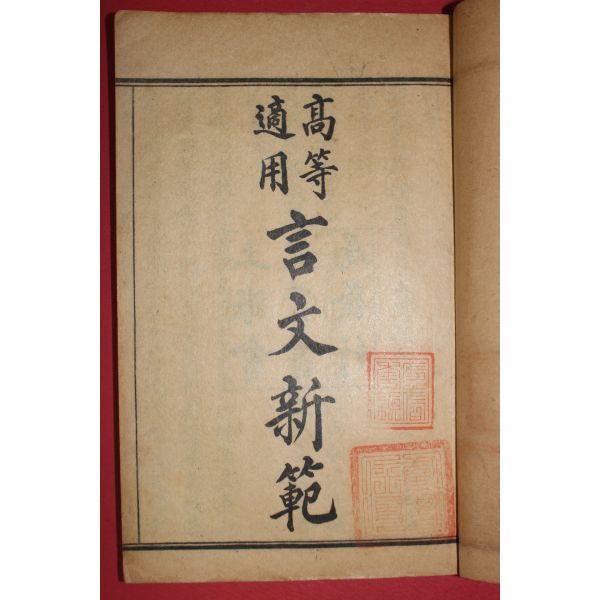 高等
適用
言文新範